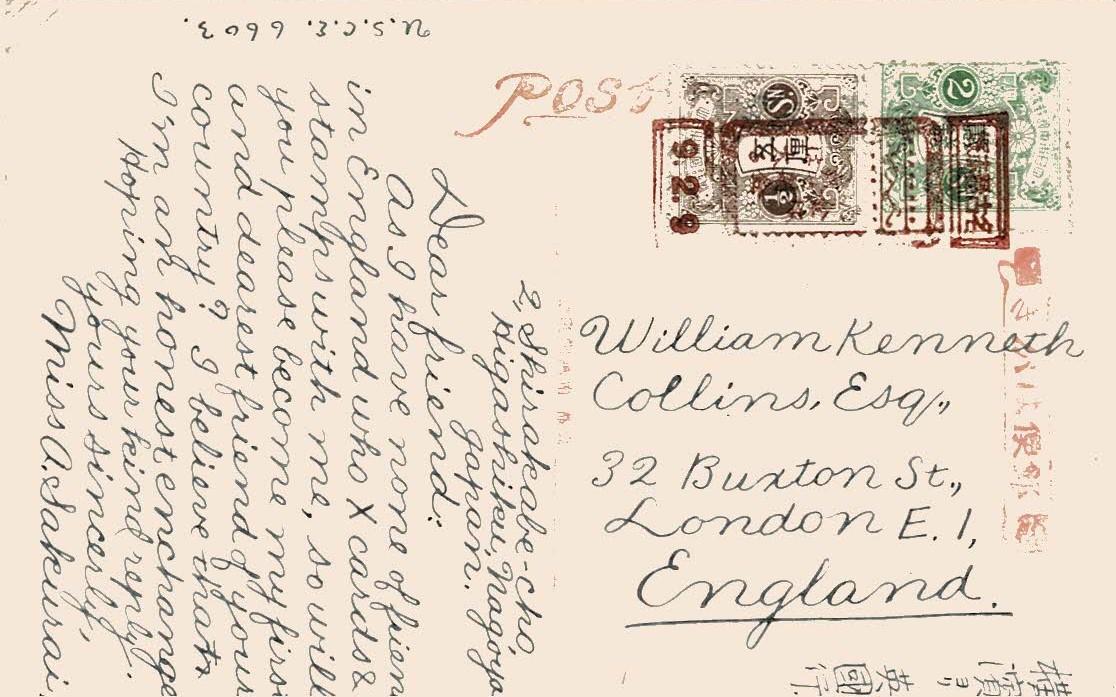 U.S.C.E. 6603.
2, Shirakabe-cho,
Higashiku, Nagoya
Japan.
Dear friend:
As I have none of frien
in England who X cards &
stamps with me, so will
you please become my firs
and dearest friend of your
country? I believe that
I'm an honest enchange
Hoping your kind reply.
yours sincerly,
Miss A. Sakurai.
POST
2
SN
五厘
½
9.2.9
William Kenneth
Collins, Esq.,
32 Buxton St.,
London E. 1,
England.
英國